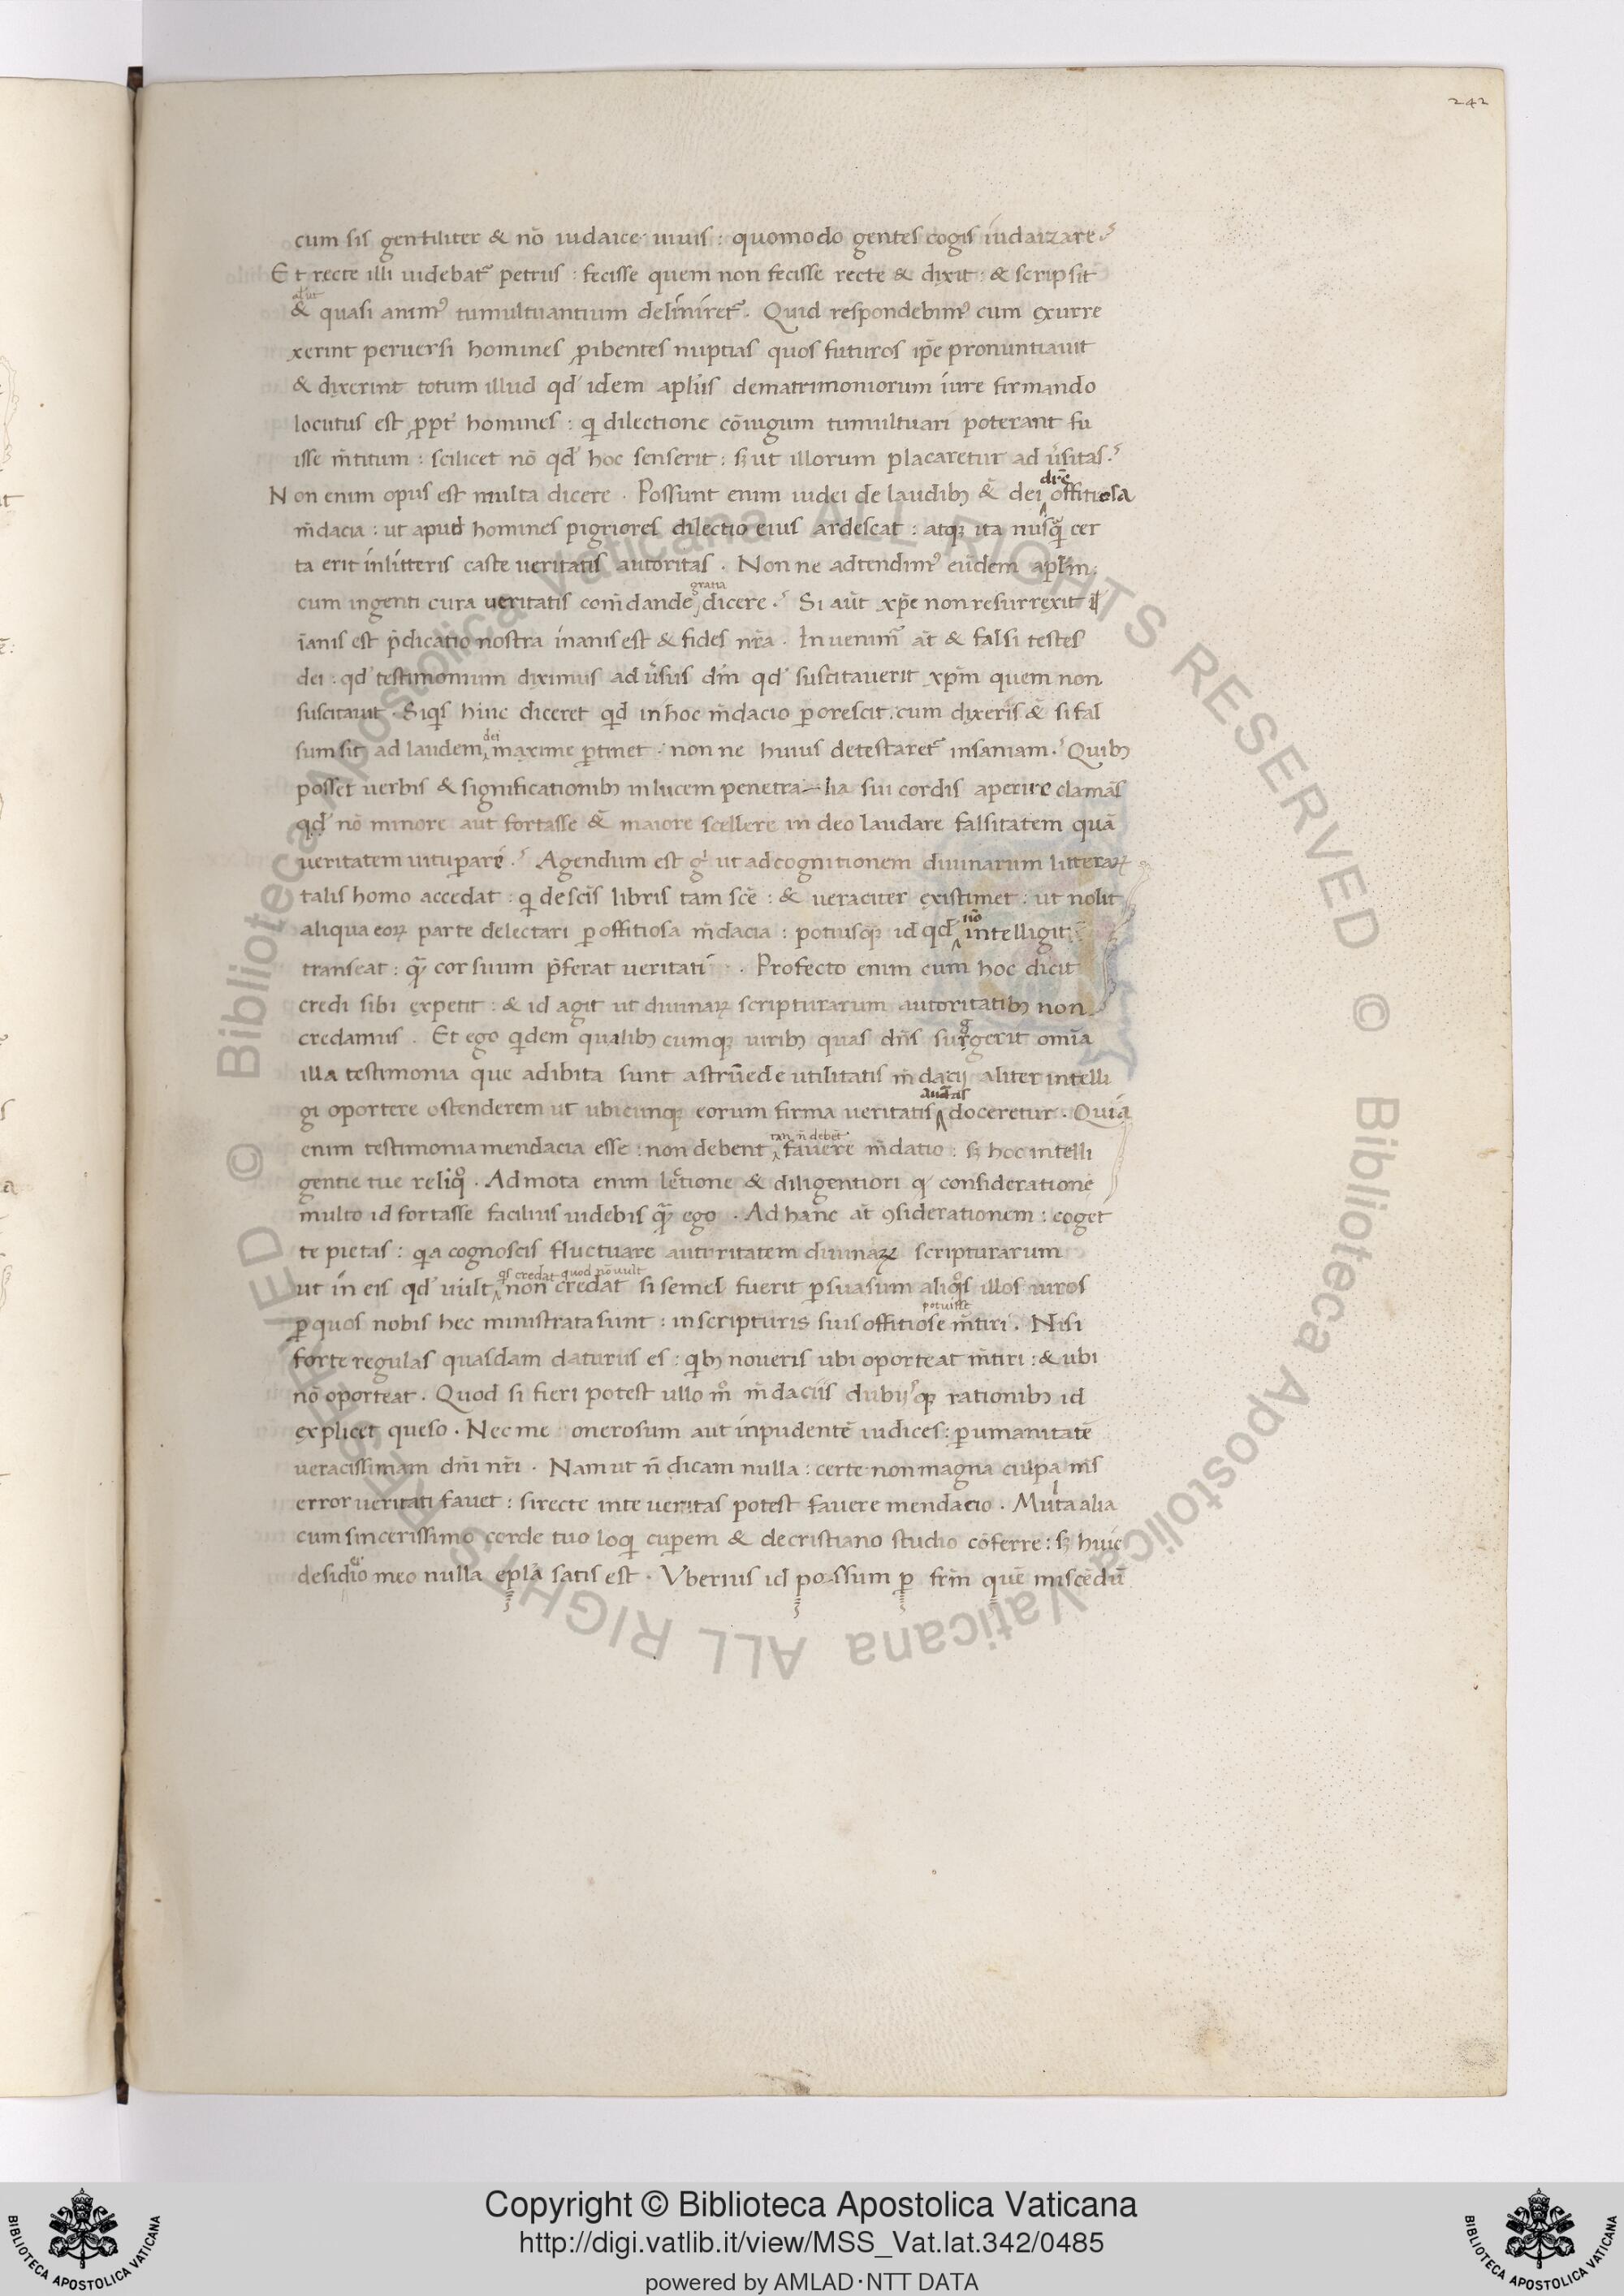 242
cum sis gentiliter & nō iudaice uiuis : quomodo gentes cogis iudaizare
Et recte illi uidebat᷑ petrus : fecisse quem non fecisse recte & dixit : & scripsit
& quasi anim᷒ tumultuantium deliniret᷑ . Quid respondebim᷒ cum exurre
xerint peruersi homines ꝓibentes nuptias quos futuros ip̄e pronuntiauit
& dixerint totum illud qd' idem apl'us dematrimoniorum iure firmando
locutus est ꝓpt' homines : q dilectione cōiugum tumultuari poterant fu
isse m̄titum : scilicet nō qd' hoc senserit : sꝫ ut illorum placaretur ad u'sitas
Non enim opus est multa dicere . Possunt enim uidei de laudibꝫ & dei dir̄e offitiosa
m̄dacia : ut apud homines pigriores dilectio eius ardescat : atqꝫ ita nusq̄ cer
ta erit inlitteris caste ueritatis autoritas . Non ne adtendim᷒ eūdem apl'm
cum ingenti cura ueritatis com̄dande gratia dicere . Si aūt xp̄e non resurrexit
īanis est p̄dicatio nostra inanis est & fides nr̄a . Inuenim᷑ at̄ & falsi testes
dei : qd' testimonium diximus ad u'sus dm̄ qd' suscitauerit xpm̄ quem non
suscitauit . Siqis hinc diceret qd inhoc m̄dacio ꝑorescit . cum dixeris & si fal
sum sit ad laudem dei maxime ꝑtinet . non ne huius detestaret᷑ insaniam . Quibꝫ
posset uerbis & significationibꝫ inlucem penetralia sui cordis aperire clamās
qd' nō minore aut fortasse & maiore scellere in deo laudare falsitatem quā
ueritatem uituꝑare . Agendum est g' ut adcognitionem diuinarum litteraꝝ
talis homo accedat : q de scis libris tam scē : & ueraciter existimet : ut nolit
aliqua eoꝝ parte delectari ꝑ offitiosa m̄dacia : potiusqꝫ id qd nō intelligit
transeat : q̄ cor suum p̄ferat ueritati . Profecto enim cum hoc dicit
credi sibi expetit : & id agit ut diuinaꝝ scripturarum autoritatibꝫ non
credamus . Et ego qdem qualibꝫ cumqꝫ uiribꝫ quas dn̄s surgerit omīa
illa testimonia que adibita sunt astrūede utilitatis m̄dacij aliter intelli
gi oportere ostenderem ut ubicunqꝫ eorum firma ueritatis auct̄as doceretur . Quia
enim testimonia mendacia esse : non debent tan n̄ debēt fauere m̄datio : sꝫ hoc intelli
gentie tue reliqo . Admota enim lectione & diligentiori q consideratione
multo id fortasse facilius uidebis q̄ ego . Ad hanc at̄ ꝯsiderationem : coget
te pietas : qa cognoscis fluctuare autoritatem diuinaꝝ scripturarum
ut in eis qd' uult qs credat quod nō uult non credat si semel fuerit ꝑsuasum aliqos illos uiros
ꝑ quos nobis hec ministrata sunt : inscripturis suis offitiose potuisse m̄tiri . Nisi
forte regulas quasdam daturus es : qibꝫ noueris ubi oporteat m̄tiri : & ubi
nō oporteat . Quod si fieri potest ullo mo m̄daciis dubijsqꝫ rationibꝫ id
explicet queso . Nec me onerosum aut inpudentē iudices : ꝑ umanitatē
ueracissimam dn̄i nr̄i . Nam ut n̄ dicam nulla : certe non magna culpa m̄s
error ueritati fauet : si recte inte ueritas potest fauere mendacio . Multa alia
cum sincerissimo corde tuo loqi cuꝑem & decristiano studio cōferre : sꝫ huic
desidio meo nulla epla satis est . Vberius id possum ꝑ frm̄ quē miscēdū
Copyright © Biblioteca Apostolica Vaticana
http://digi.vatlib.it/view/MSS_Vat.lat.342/0485
powered by AMLAD·NTT DATA
BIBLIOTECA APOSTOLICA VATICANA
BIBLIOTECA APOSTOLICA VATICANA
© Biblioteca Apostolica Vaticana ALL RIGHTS RESERVED © Biblioteca Apostolica Vaticana ALL RIGHTS RESERVED